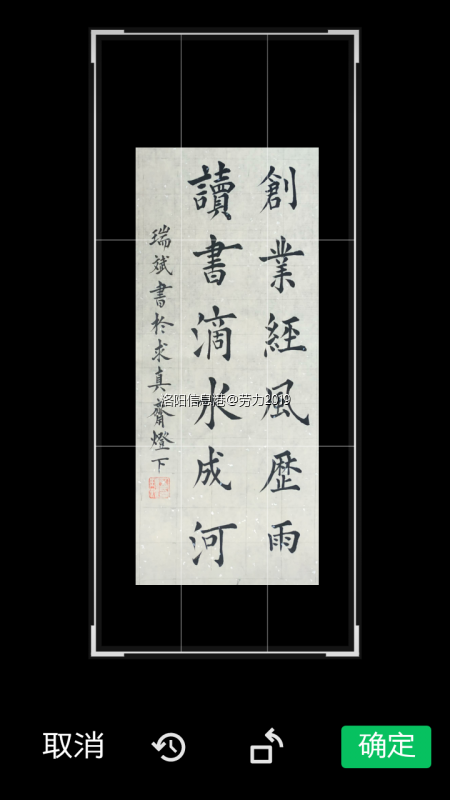 創業經風歷雨
讀書滴水成河
瑞斌書於求真齋燈下
洛阳信息港@劳力2019
取消
确定